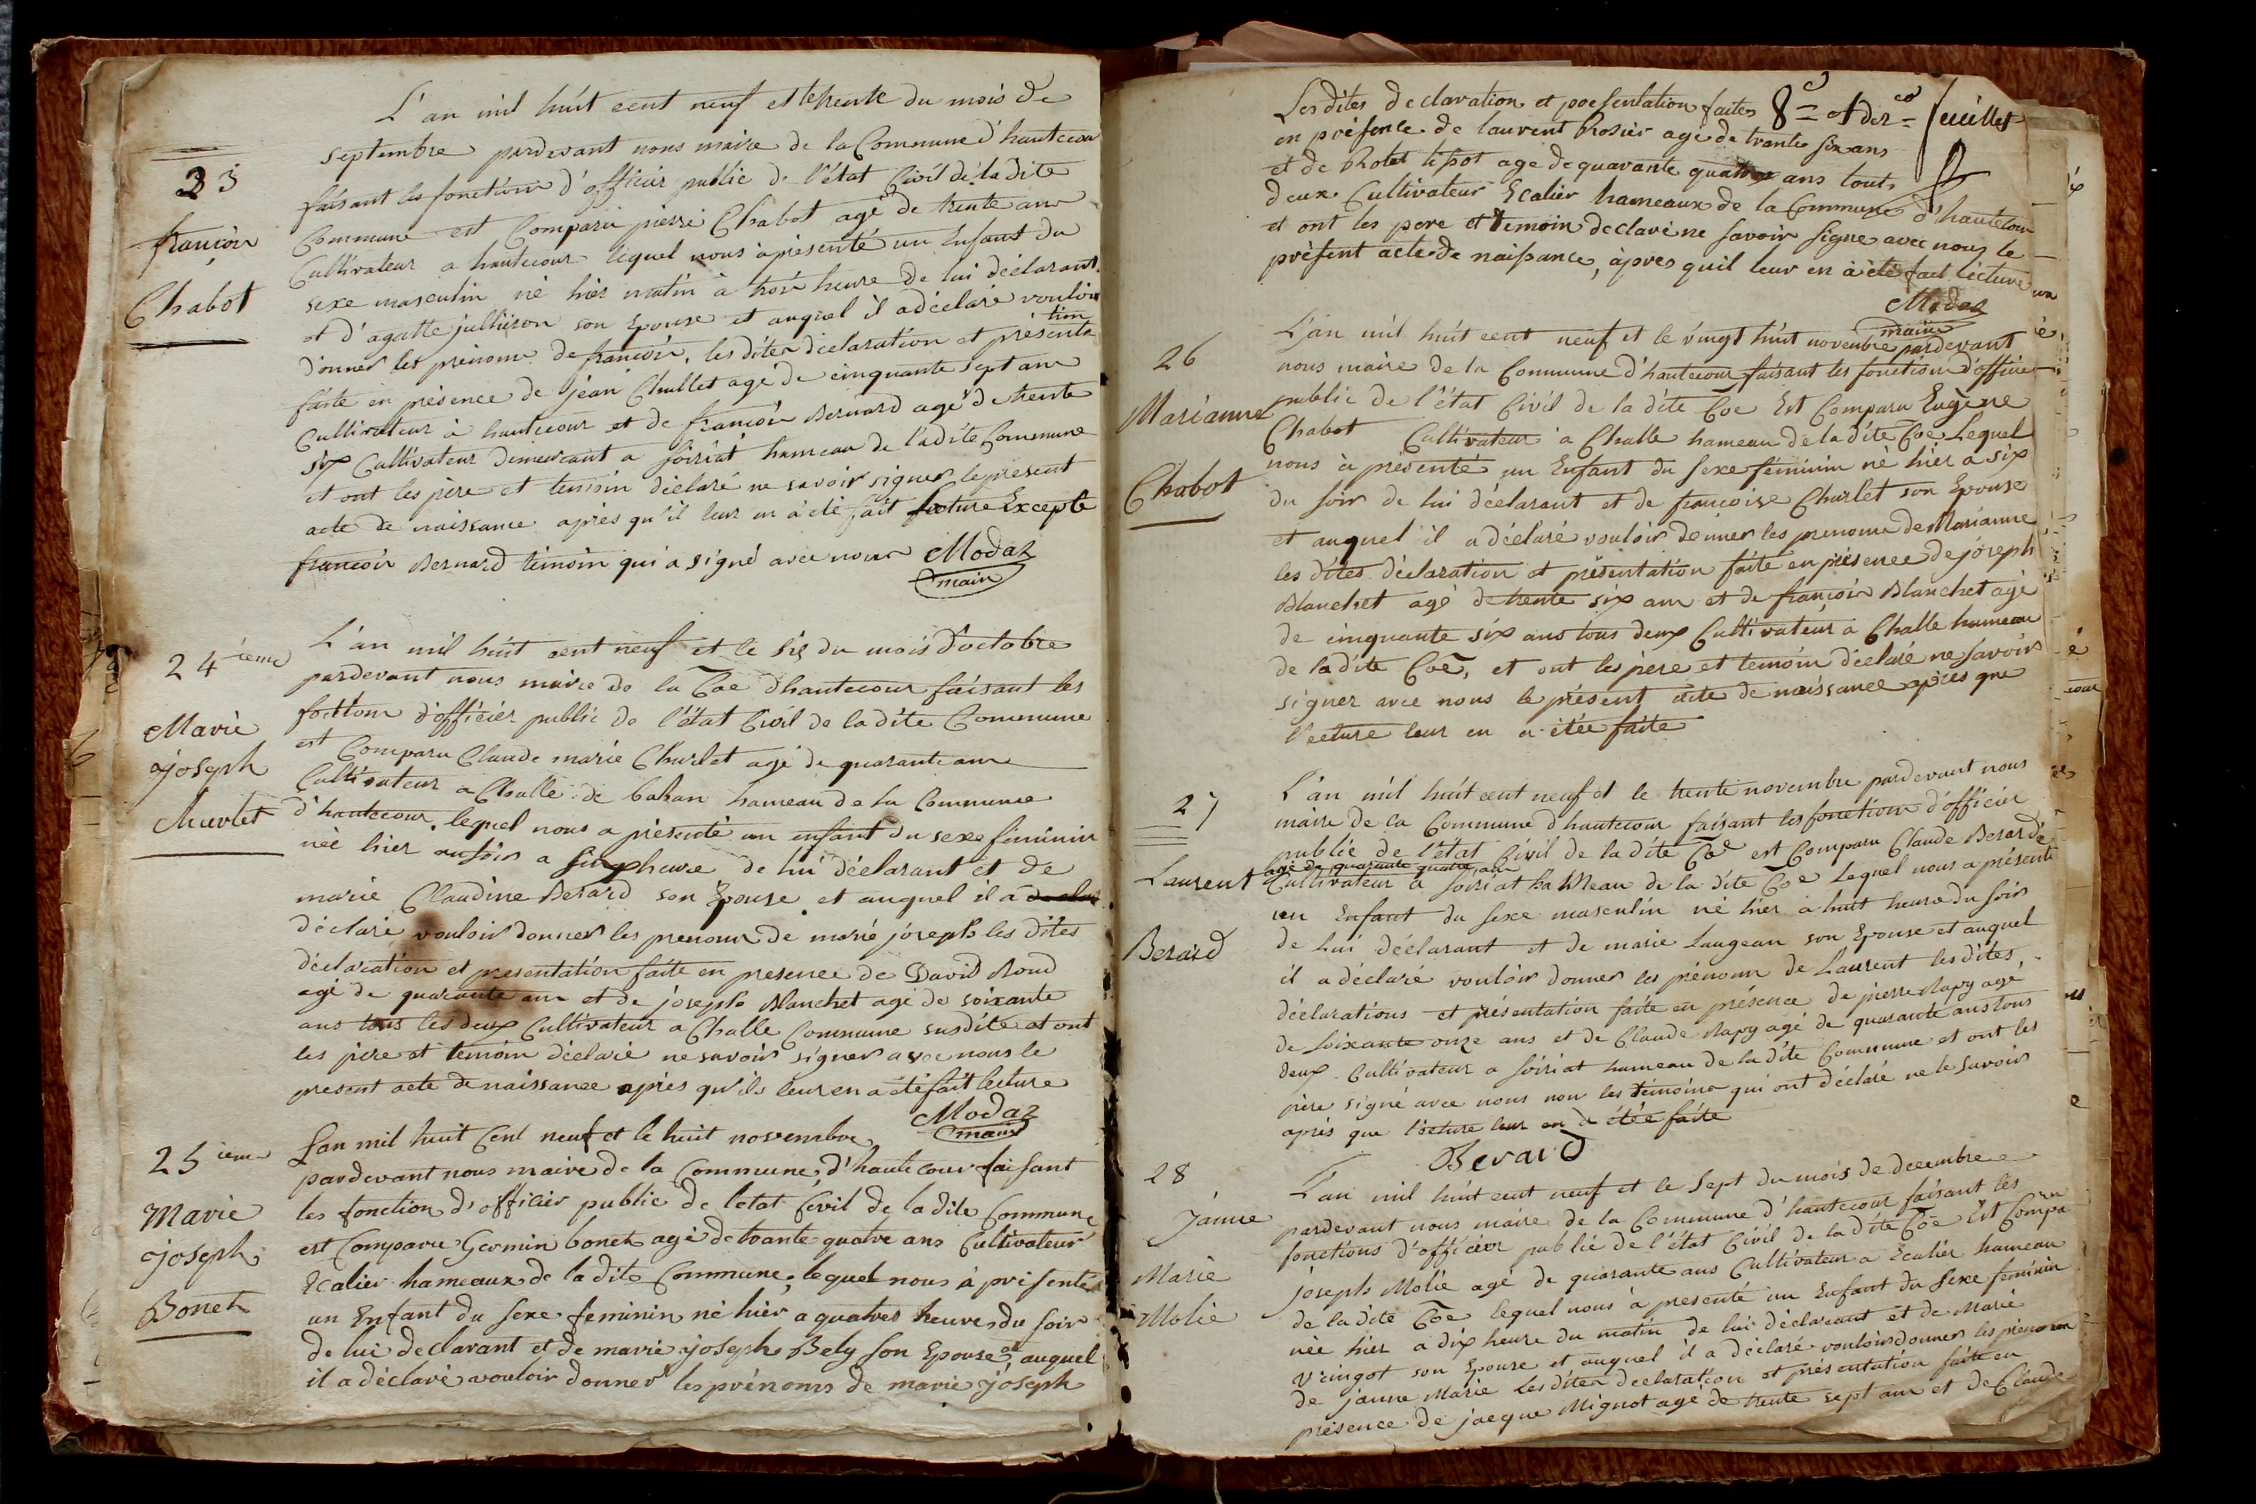 23
françois
Chabot
L'an mil huit cent neuf et le trente du mois de
septembre pardevant nous maire de la Commune d'hautecour
faisant les fonction d'officier public de l'état Civil de la dite
Commune est Comparu pierre Chabot agé de trente ans
Cultivateur a hautecour lequel nous à présenté un Enfant du
sexe masculin né hier matin à trois heure de lui déclarant
et d'agatte jullieron son Epouse et auquel il a déclaré vouloir
donner les prénoms de françois, les dites déclaration et présenta
tion
faite en présence de jean Chullet agé de cinquante sept ans
Cultivateur à hautecour et de françois Bernard agé de trente
six Cultivateur demeurant a soiriat hameau de ladite Commune
et ont les père et temoin déclaré ne savoir signer le présent
acte de naissance après qu'il leur en à été fait lecture Excepté
françois Bernard témoin qui a signé avec nous Modaz
maire
24 ième
Marie
joseph
Churlet
L'an mil huit cent neuf et le six du mois d'octobre
pardevant nous maire de la Coe d'hautecour faisant les
fonttion d'officier public de l'état Civil de la dite Commune
est Comparu Claude marie Churlet agé de quarante ans
Cultivateur a Challe de bohan hameau de la Commune
d'hautecour, lequel nous a présenté un enfant du sexe féminin
née hier au soir a six heure de lui déclarant et de
marie Claudine Berard son Epouse et auquel il a de clar
déclaré vouloir donner les prenoms de marie joseph les dites
déclaration et presentation faite en presence de David Roud
agé de quarante ans et de joseph Blanchet agé de soixante
ans tous les deux Cultivateur a Challe Commune susdite et ont
les père et temoin déclaré ne savoir signer avec nous le
present acte de naissance après qu'ils leur en a été fait lecture
Modaz
maire
25 ième
Marie
joseph
Bonet
L'an mil huit Cent neuf et le huit novembre
pardevant nous maire de la Commune, d'hautecour faisant
les fonction d'officier public de l'etat Civil de la dite Commune
est Comparu Germin bonet agé de trante quatre ans Cultivateur
Ecalier hameaux de la dite Commune, lequel nous à présenté
un Enfant du sexe feminin né hier a quatres heures du soir
de lui declarant et de marie joseph Bely son Epouse et auquel
il a déclaré vouloir donner les prénoms de marie joseph
8e et der feuillet
Les dites declaration et presentation faites
en présence de laurent Rosier agé de trante six ans
et de Rolet tissot agé de quarante quattre ans touts
deux Cultivateur Ecalier hameaux de la Commune d'hautecour
et ont les pere et temoin déclaré ne savoir signe avec nous le
présent acte de naissance, àpres quil leur en à été fait lecture
Modaz
maire
26
Marianne
Chabot
L'an mil huit cent neuf et le vingt huit novembre pardevant
nous maire de la Commune d'hautecour faisant les fonction d'officier
public de l'état Civil de la dite Coe Est Comparu Eugène
Chabot Cultivateur a Challe hameau de la dite Coe Lequel
nous à présenté un Enfant du sexe féminin né hier a six
du soir de lui déclarant et de francoise Churlet son Epouse
et auquel il a déclaré vouloir donner les prenoms de Marianne
les dites déclaration et présentation faite en présence de joseph
Blanchet agé de trente six ans et de françois Blanchet agé
de cinquante six ans tous deux Cultivateur a Challe hameau
de la dite Coe, et ont les père et temoin déclaré ne savoir
signer avec nous le présent acte de naissance après que
lecture leur en a étée faite
27
Laurent
Berard
L'an mil huit cent neuf et le trente novembre pardevant nous
maire de la Commune d'hautecour faisant les fonction d'officier
public de l'état Civil de la dite Coe est Comparu Claude Berard
agé de quarante quatre ans
Cultivateur a soiriat hameau de la dite Coe Lequel nous a présenté
un Enfant du sexe masculin né hier a huit heure du soir
de lui déclarant et de marie Laugean son Epouse et auquel
il a déclaré vouloir donner les prénoms de Laurent les dites,
déclarations et présentation faite en présence de pierre Rapy agé
de soixante onze ans et de Claude Rapy agé de quarante ans tous
deux Cultivateur a soiriat hameau de la dite Commune et ont les
père signé avec nous non les témoins qui ont déclaré ne le savoir
après que lecture leur en à étée faite
Berard
28
Janne
Marie
Molie
L'an mil huit cent neuf et le sept du mois de decembre
pardevant nous maire de la Commune d'hautecour faisant les
fonctions d'officier public de l'état Civil de la dite Coe Est Compa
ru
joseph Molie agé de quarante ans Cultivateur a Ecalier hameau
de la dite Coe lequel nous à presenté un Enfant du sexe féminin
née hier a dix heure du matin de lui déclarant et de Marie
Vingot son Epouse et auquel il a déclaré vouloir donner les prenoms
de janne Marie Les dites declaration et présentation faite en
présence de jacque Mignot agé de trente sept ans et de Claude